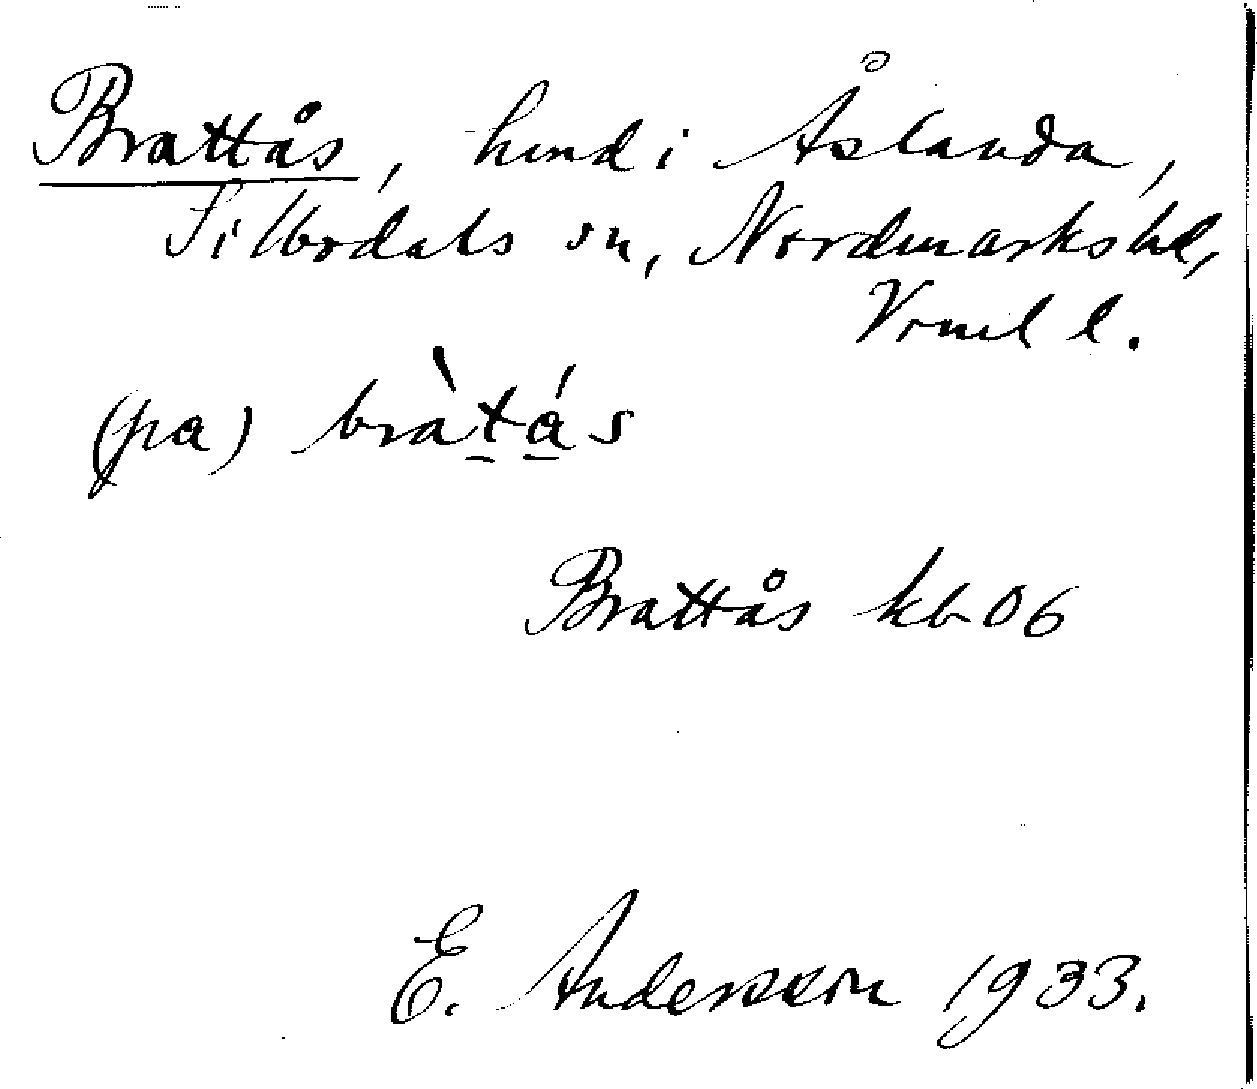 Brattås, hmd i Åslanda,
Sillbodals sn, Nordmarks hd,
Vrml l.
(pa) bràtás
Brattås kb 06
E. Andersson 1933.